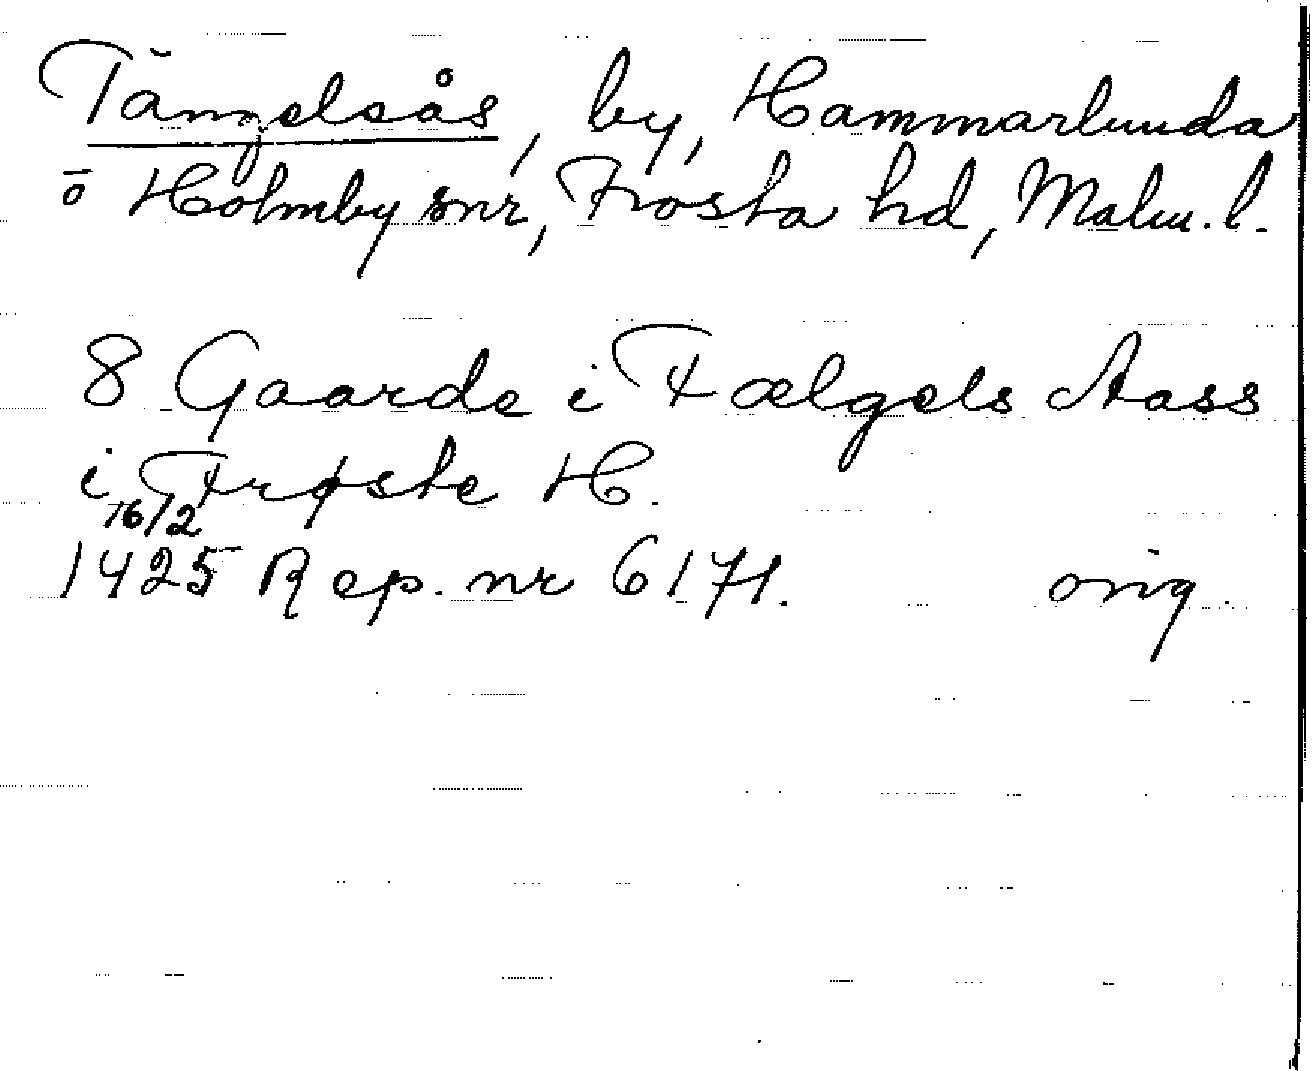 Tängelsås, by, Hammarlunda
o Holmby snr, Frosta hd, Malm. l.
8 Gaarde i Fælgels Aass
i Frøste H.
16/2
1425 Rep. nr 6171. orig.